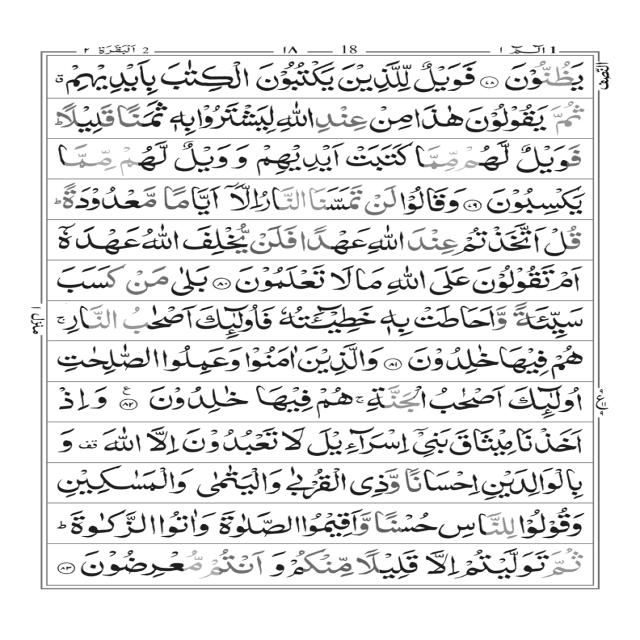 1 الٓـمّٓ ۱ — 18 — ۱۸ — 2 اَلْبَقَرَة ۲
يَظُنُّوْنَ ﴿۷۸﴾ فَوَيْلٌ لِّلَّذِيْنَ يَكْتُبُوْنَ الْكِتٰبَ بِاَيْدِيْهِمْ ۗ
ثُمَّ يَقُوْلُوْنَ هٰذَا مِنْ عِنْدِ اللّٰهِ لِيَشْتَرُوْا بِهٖ ثَمَنًا قَلِيْلًا ؕ
فَوَيْلٌ لَّهُمْ مِّمَّا كَتَبَتْ اَيْدِيْهِمْ وَ وَيْلٌ لَّهُمْ مِّمَّا
يَكْسِبُوْنَ ﴿۷۹﴾ وَقَالُوْا لَنْ تَمَسَّنَا النَّارُ اِلَّاۤ اَيَّامًا مَّعْدُوْدَةً ؕ
قُلْ اَتَّخَذْتُمْ عِنْدَ اللّٰهِ عَهْدًا فَلَنْ يُّخْلِفَ اللّٰهُ عَهْدَهٗۤ
اَمْ تَقُوْلُوْنَ عَلَى اللّٰهِ مَا لَا تَعْلَمُوْنَ ﴿۸۰﴾ بَلٰى مَنْ كَسَبَ
سَيِّئَةً وَّاَحَاطَتْ بِهٖ خَطِيْٓئَتُهٗ فَاُولٰٓئِكَ اَصْحٰبُ النَّارِ ۚ
هُمْ فِيْهَا خٰلِدُوْنَ ﴿۸۱﴾ وَالَّذِيْنَ اٰمَنُوْا وَعَمِلُوا الصّٰلِحٰتِ
اُولٰٓئِكَ اَصْحٰبُ الْجَنَّةِ ۚ هُمْ فِيْهَا خٰلِدُوْنَ ﴿۸۲﴾ وَ اِذْ
اَخَذْنَا مِيْثَاقَ بَنِيْۤ اِسْرَآءِيْلَ لَا تَعْبُدُوْنَ اِلَّا اللّٰهَ قف وَ
بِالْوَالِدَيْنِ اِحْسَانًا وَّذِي الْقُرْبٰى وَالْيَتٰمٰى وَالْمَسٰكِيْنِ
وَقُوْلُوْا لِلنَّاسِ حُسْنًا وَّاَقِيْمُوا الصَّلٰوةَ وَاٰتُوا الزَّكٰوةَ ؕ
ثُمَّ تَوَلَّيْتُمْ اِلَّا قَلِيْلًا مِّنْكُمْ وَ اَنْتُمْ مُّعْرِضُوْنَ ﴿۸۳﴾
النّصف
منزل ۱